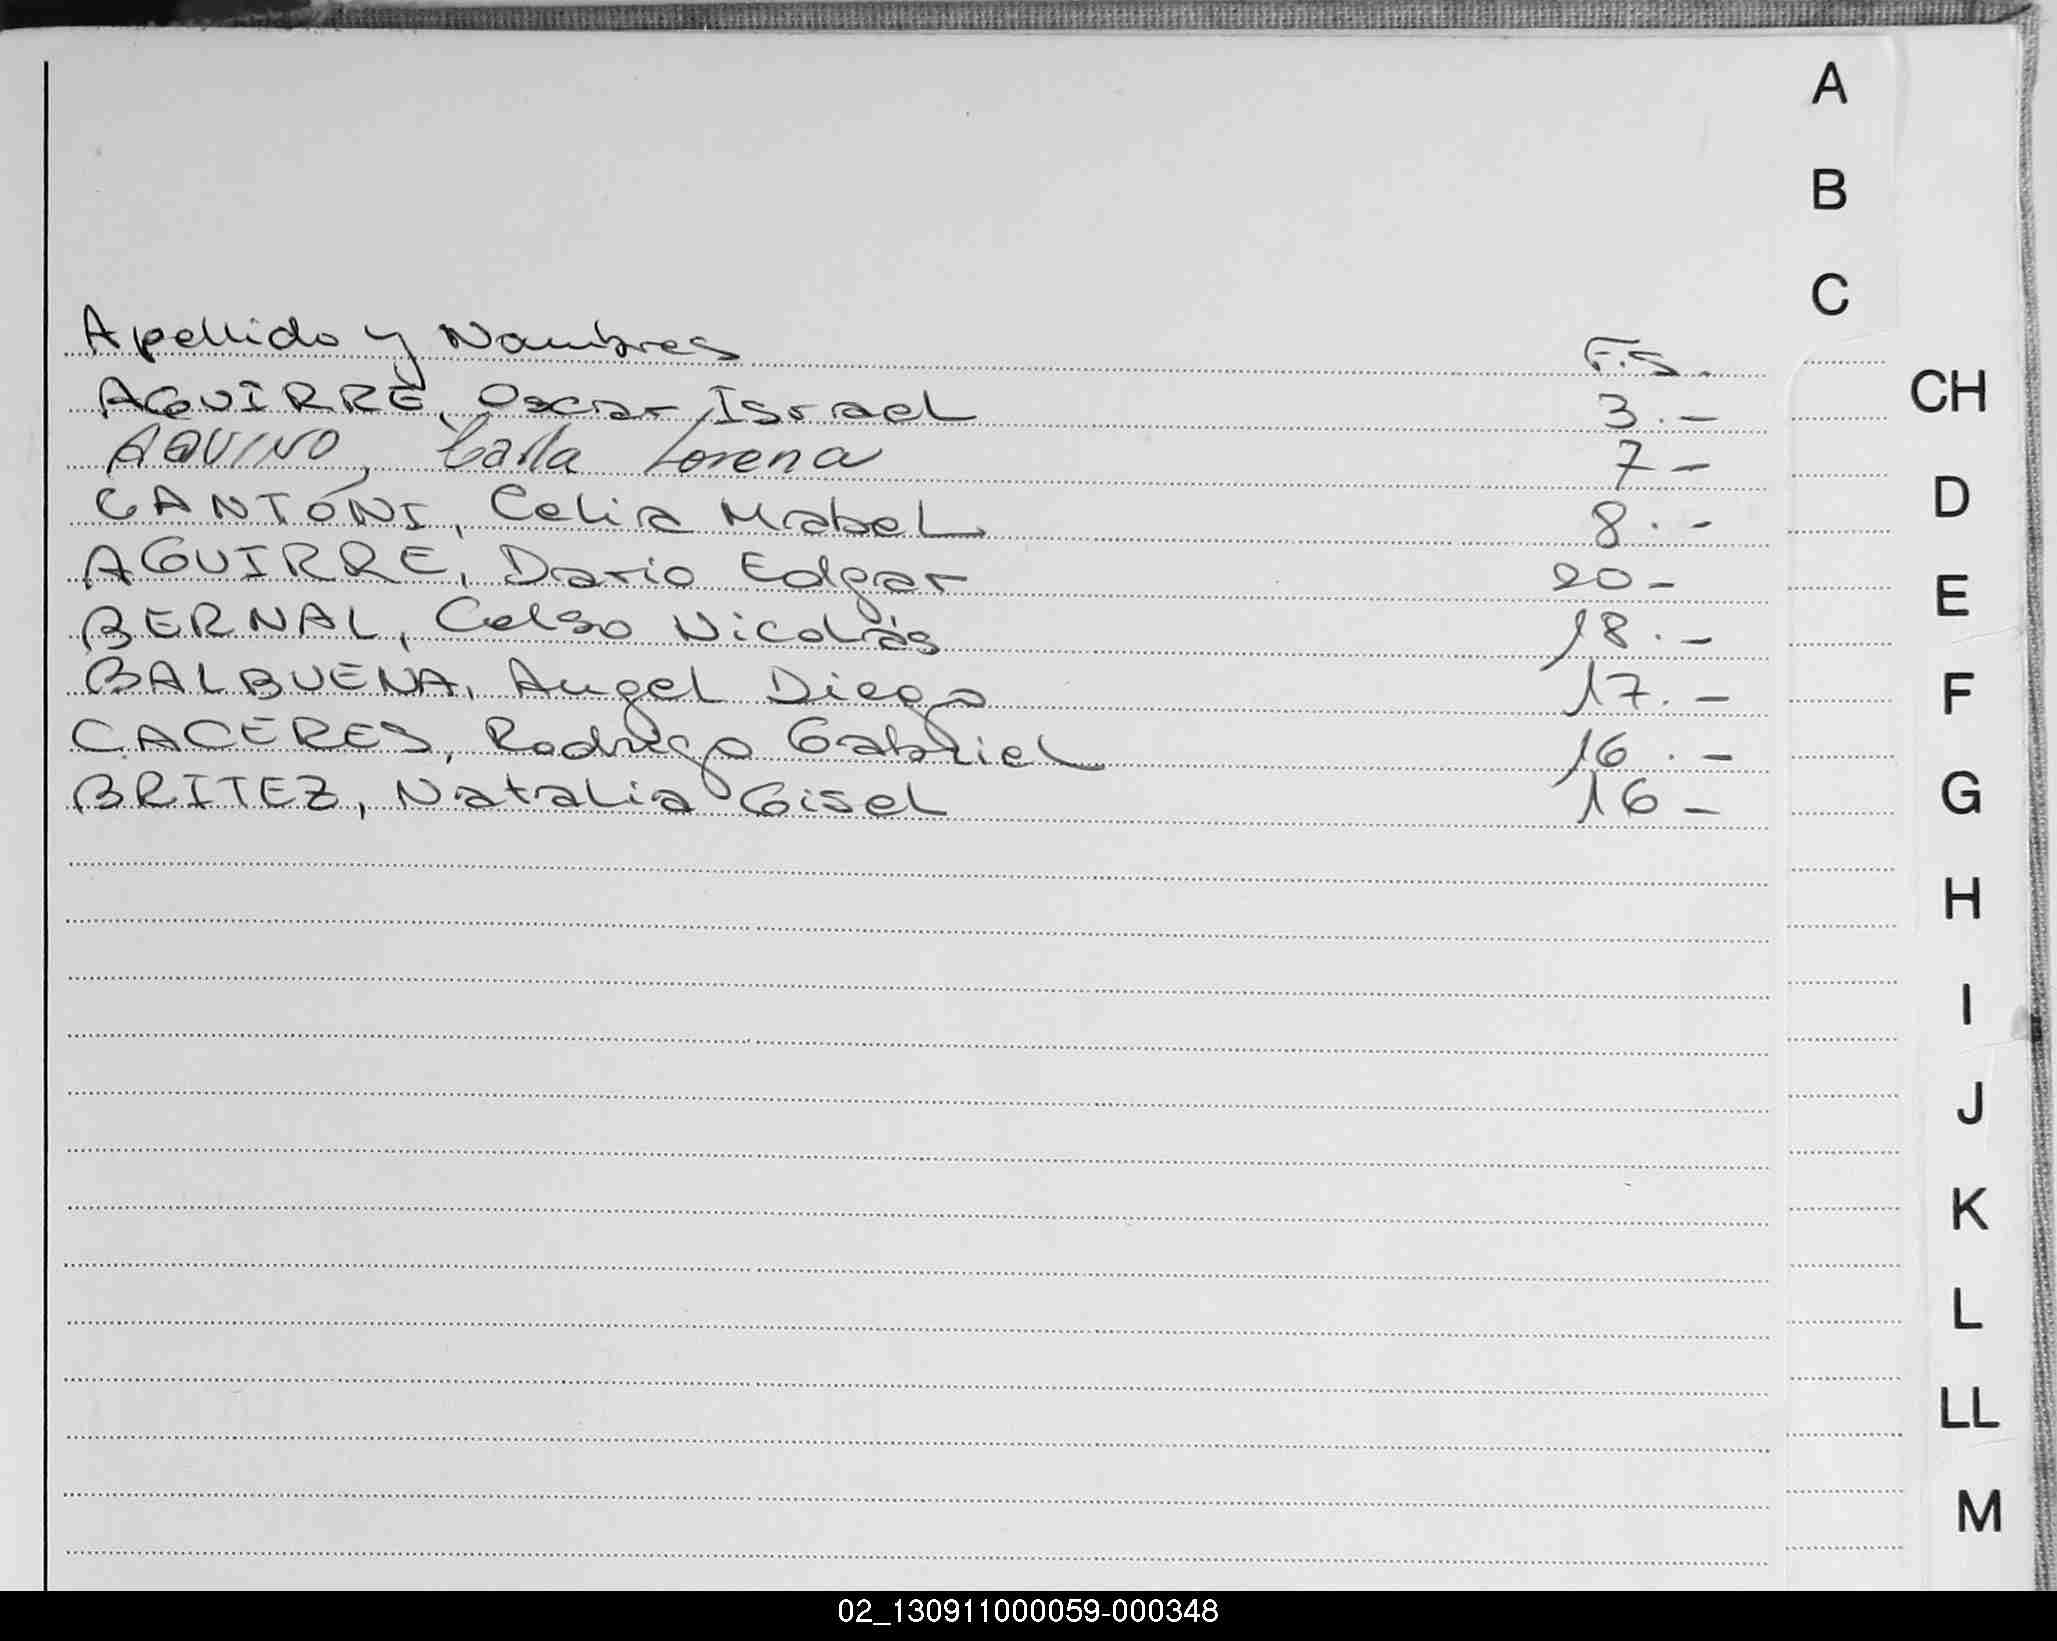 A
B
C
Apellido y Nombres F.S.
AGUIRRE, Oscar Israel 3.-
AQUINO, Carla Lorena 7-
CANTONI, Celia Mabel 8.-
AGUIRRE, Dario Edgar 20-
BERNAL, Celso Nicolás 18.-
BALBUENA, Angel Diego 17.-
CACERES, Rodrigo Gabriel 16.-
BRITEZ, Natalia Gisel 16-
CH
D
E
F
G
H
I
J
K
L
LL
M
02_130911000059-000348